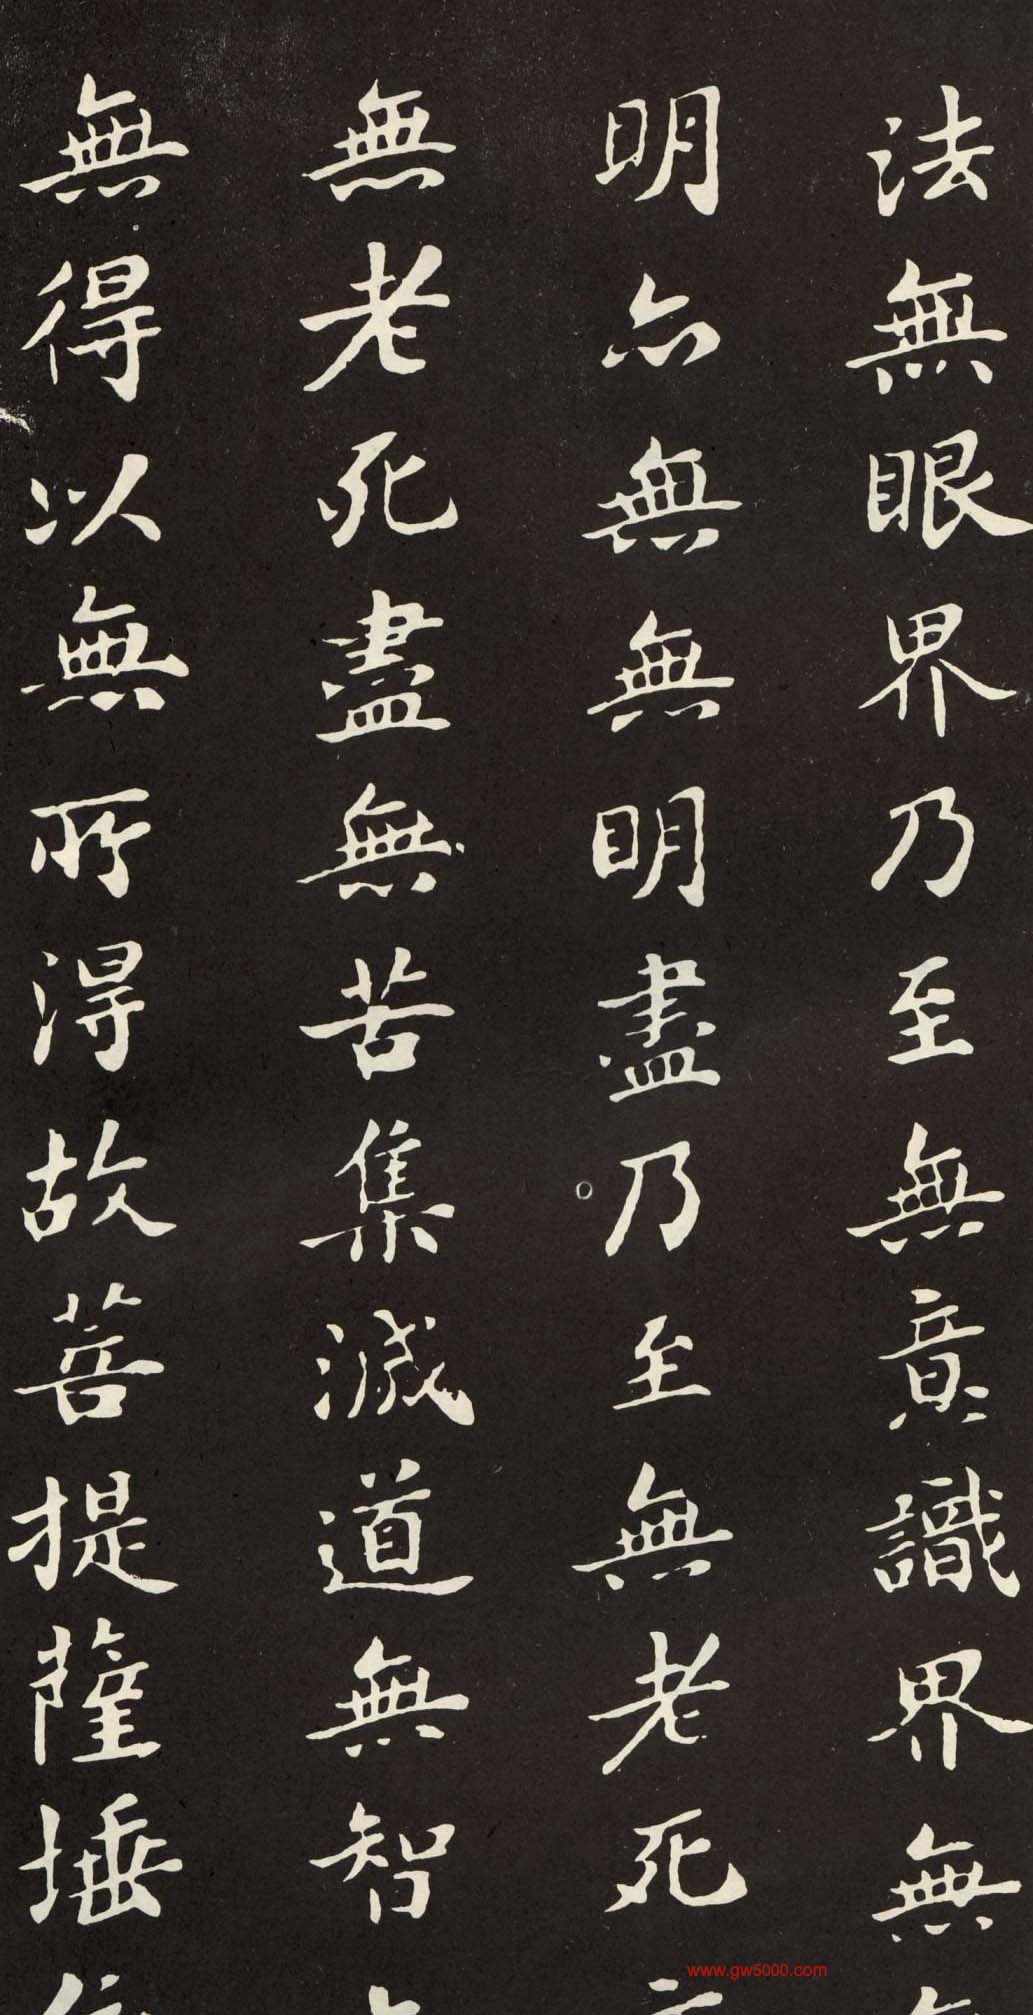 法無眼界乃至無意識界無
明亦無無明盡乃至無老死
無老死盡無苦集滅道無智
無得以無所得故菩提薩埵
www.gw5000.com